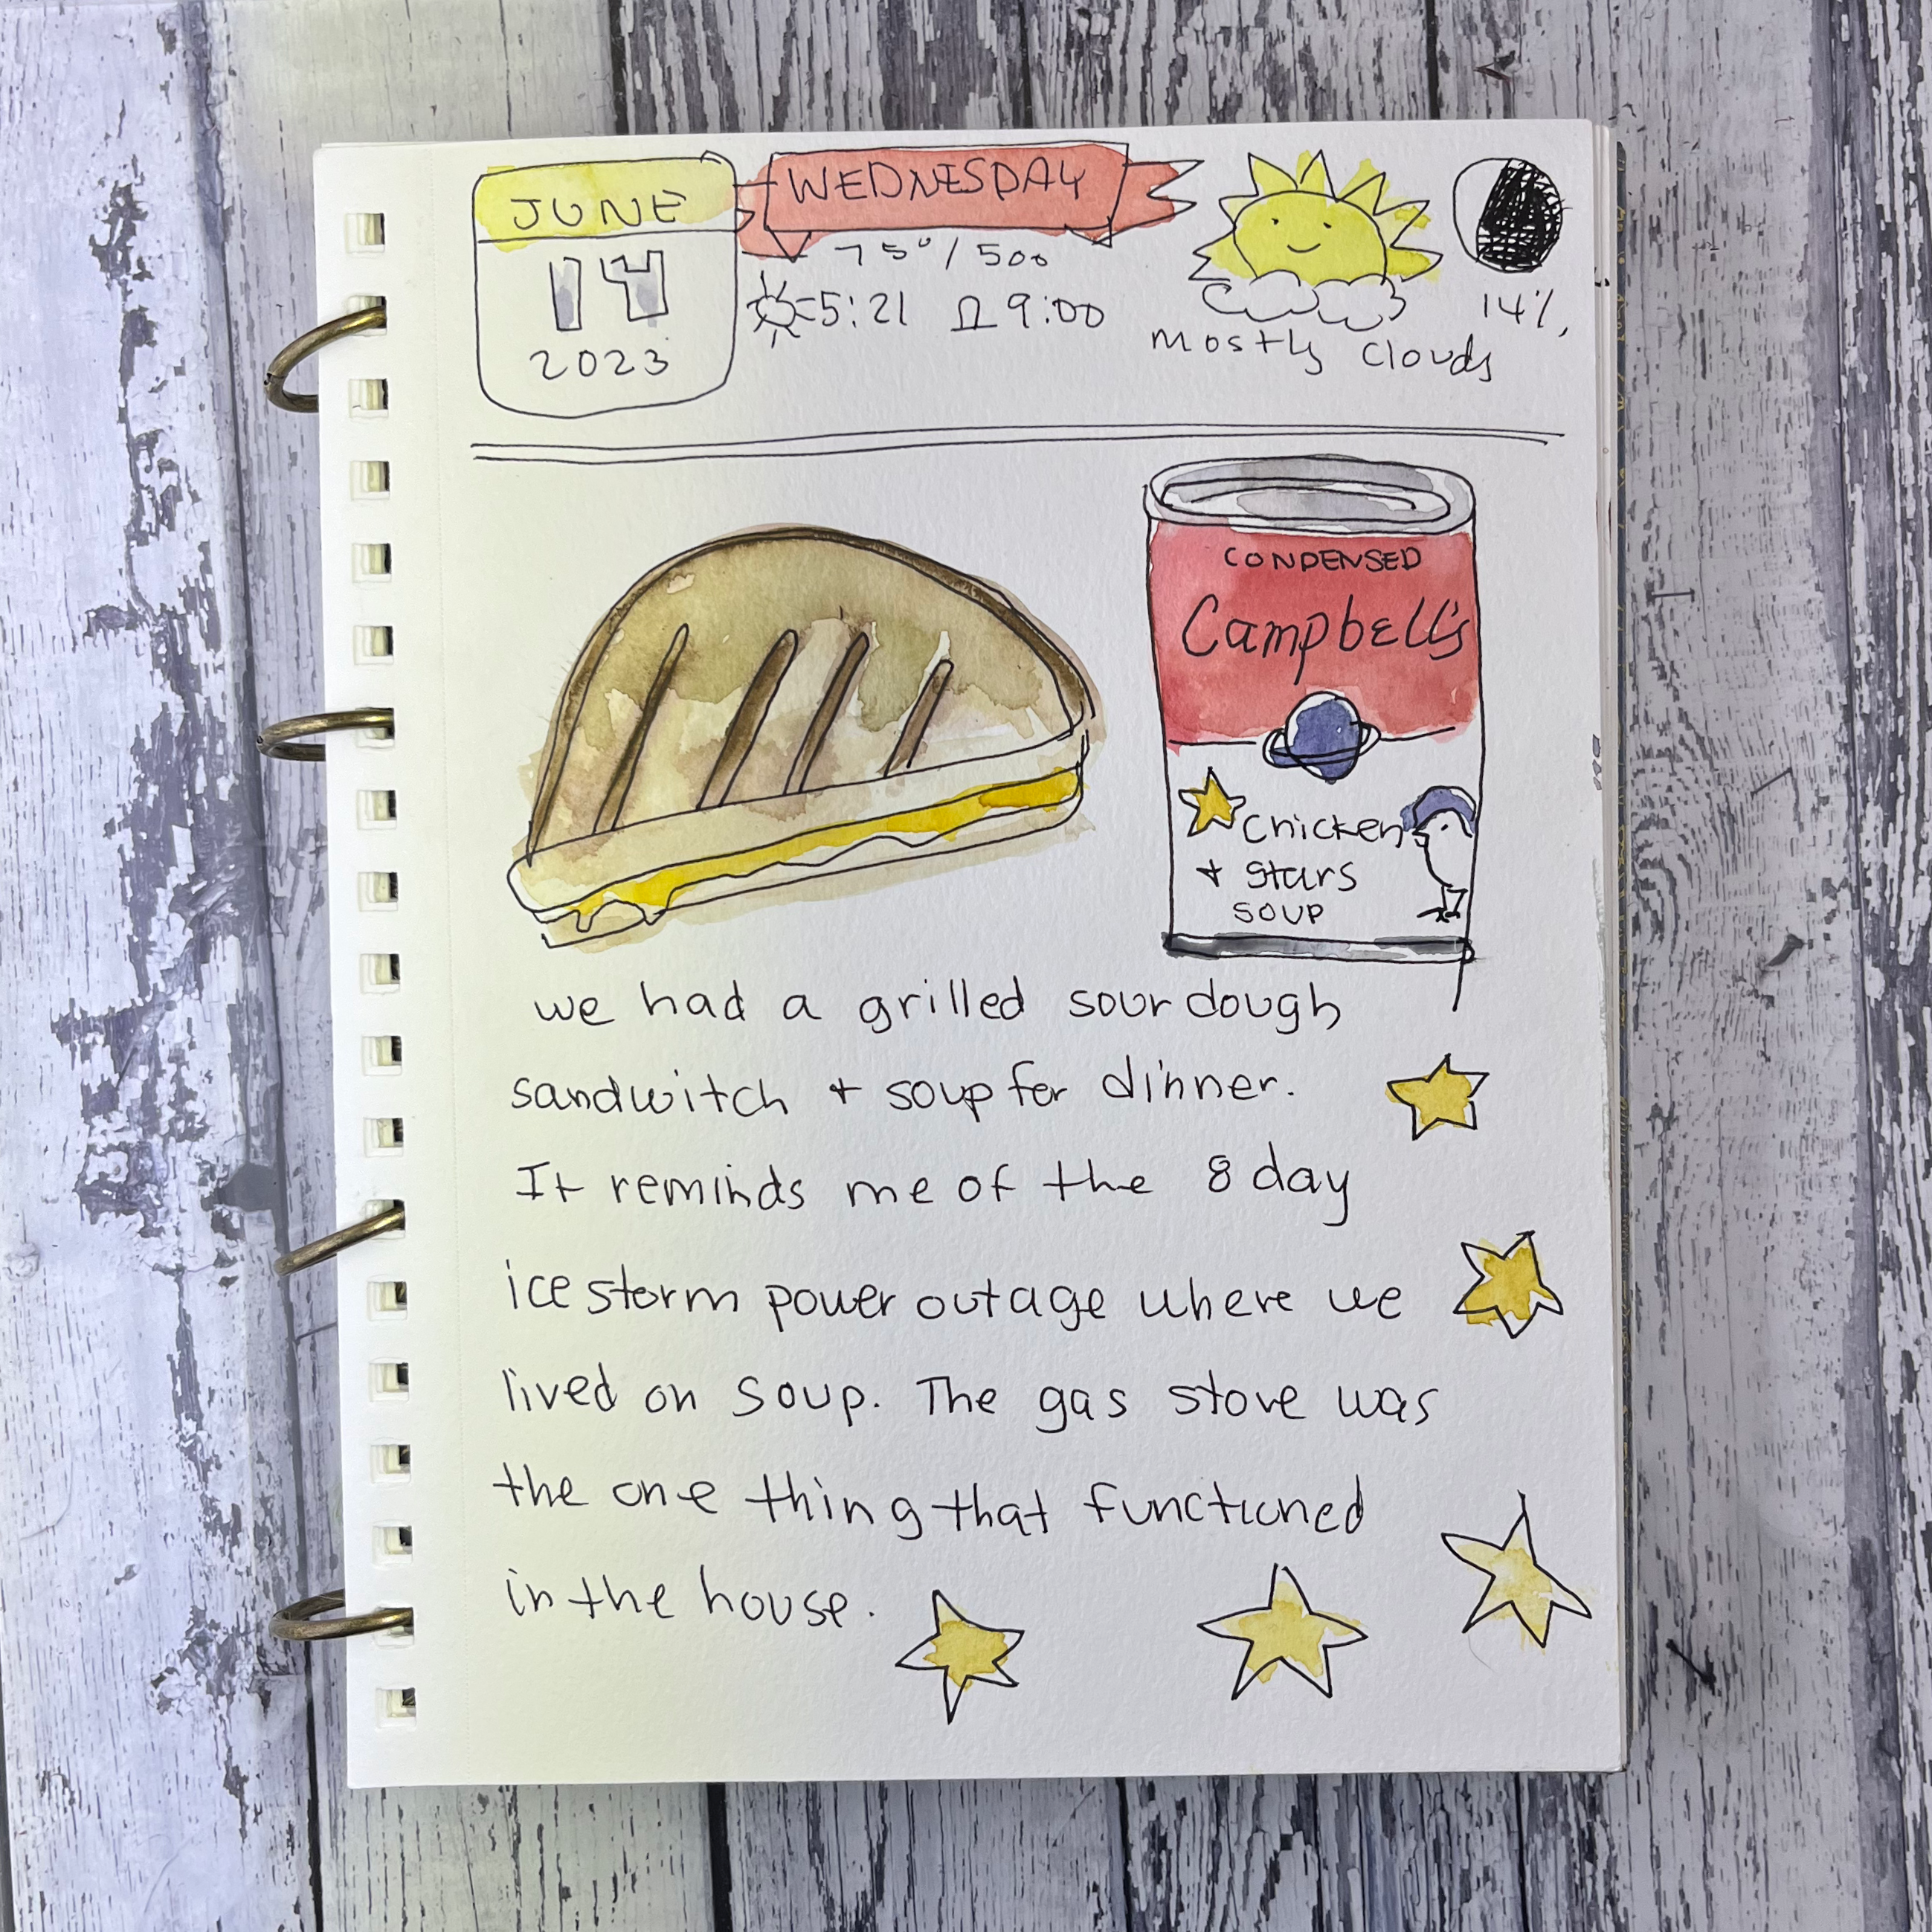 JUNE
14
2023
WEDNESDAY
75°/500
5:21 Ω 9:00
mostly clouds
14%
CONDENSED
Campbell's
Chicken
+ stars
SOUP
we had a grilled sourdough
sandwitch + soup for dinner.
It reminds me of the 8 day
ice storm power outage where we
lived on soup. The gas stove was
the one thing that functioned
in the house.